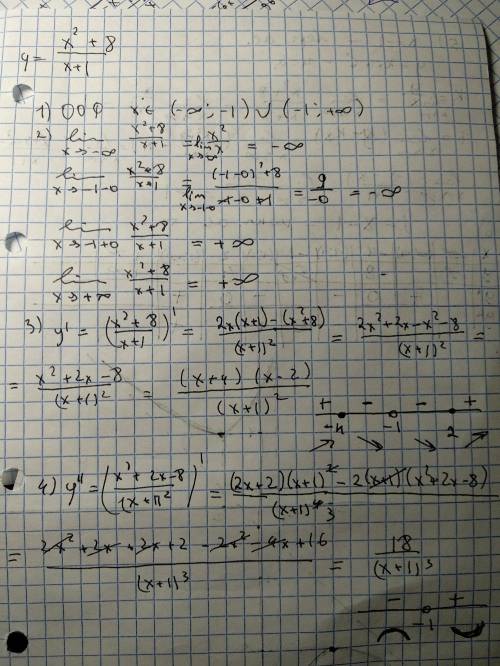 y = (x² + 8)/(x+1)
1) ООФ x ∈ (-∞; -1) ∪ (-1; +∞)
2) lim x→-∞ (x²+8)/(x+1) = lim x→-∞ x²/x = -∞
lim x→-1-0 (x²+8)/(x+1) = lim x→-1-0 (-1-0)²+8 / -1-0+1 = 9/-0 = -∞
lim x→-1+0 (x²+8)/(x+1) = +∞
lim x→+∞ (x²+8)/(x+1) = +∞
3) y' = ((x²+8)/(x+1))' = (2x(x+1) - (x²+8))/(x+1)² = (2x²+2x-x²-8)/(x+1)² =
= (x²+2x-8)/(x+1)² = ((x+4)(x-2))/(x+1)²
+ - - +
-4 -1 2
4) y'' = ((x²+2x-8)/(x+1)²)' = ((2x+2)(x+1)² - 2(x+1)(x²+2x-8))/(x+1)⁴ ³
= (2x²+2x+2x+2-2x²-4x+16)/(x+1)³ = 18/(x+1)³
- +
-1